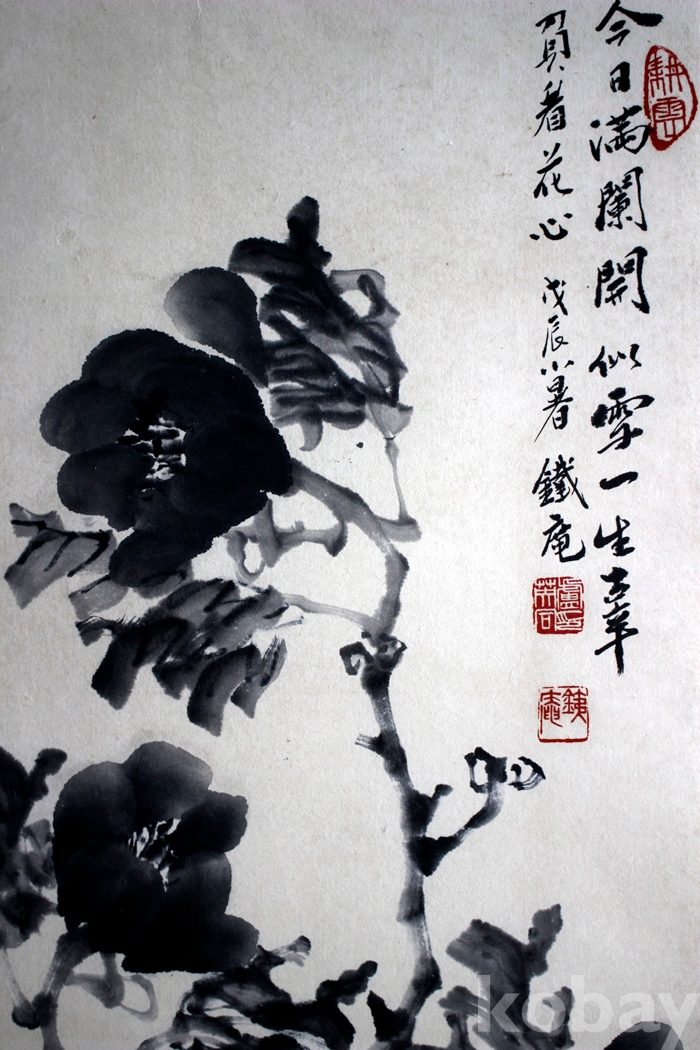 今日滿闌開似雪一生辜
負看花心 戊辰小暑 鐵庵
耕雲
kobay